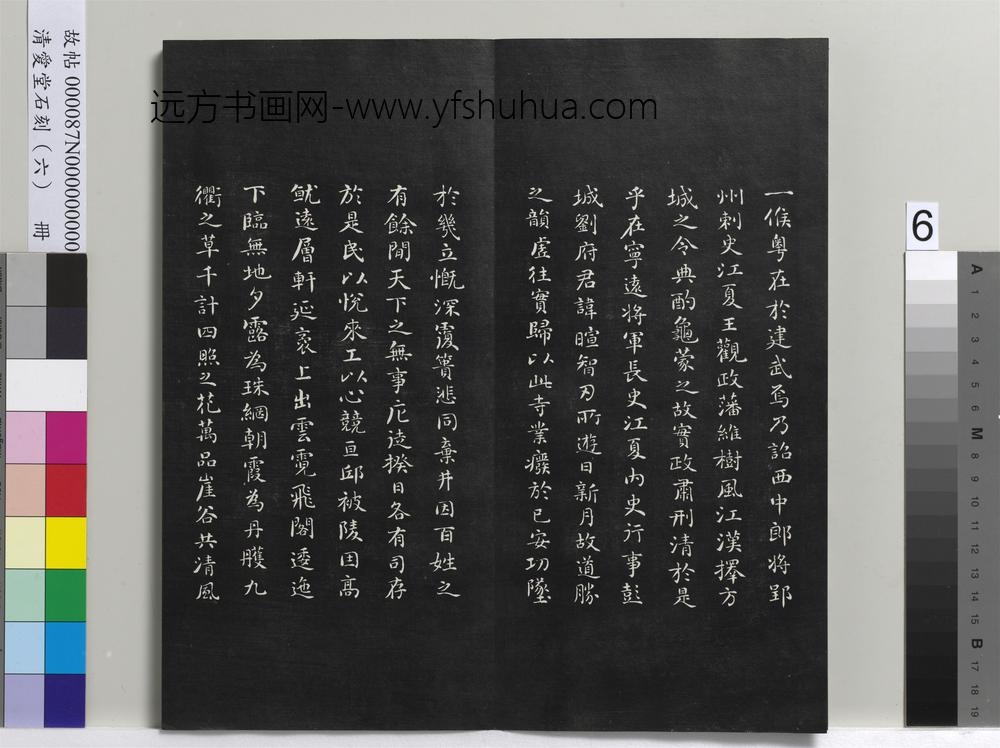 一候粵在於建武焉乃詔西中郎將郢
州刺史江夏王觀政藩維樹風江漢擇方
城之令典酌龜蒙之故實政肅刑清於是
乎在寧遠將軍長史江夏內史行事彭
城劉府君諱暄智刃所遊日新月故道勝
之韻虛往實歸以此寺業癈於已安功墜
於幾立慨深覆簣悲同棄井因百姓之
有餘閒天下之無事庀徒揆日各有司存
於是民以悅來工以心競亘邱被陵因高
就遠層軒延袤上出雲霓飛閣逶迤
下臨無地夕露為珠網朝霞為丹雘九
衢之草千計四照之花萬品崖谷共清風
远方书画网-www.yfshuhua.com
故帖 000087N000000000
清愛堂石刻（六） 冊
6
A 1 2 3 4 5 6 M 8 9 10 11 12 13 14 15 B 17 18 19